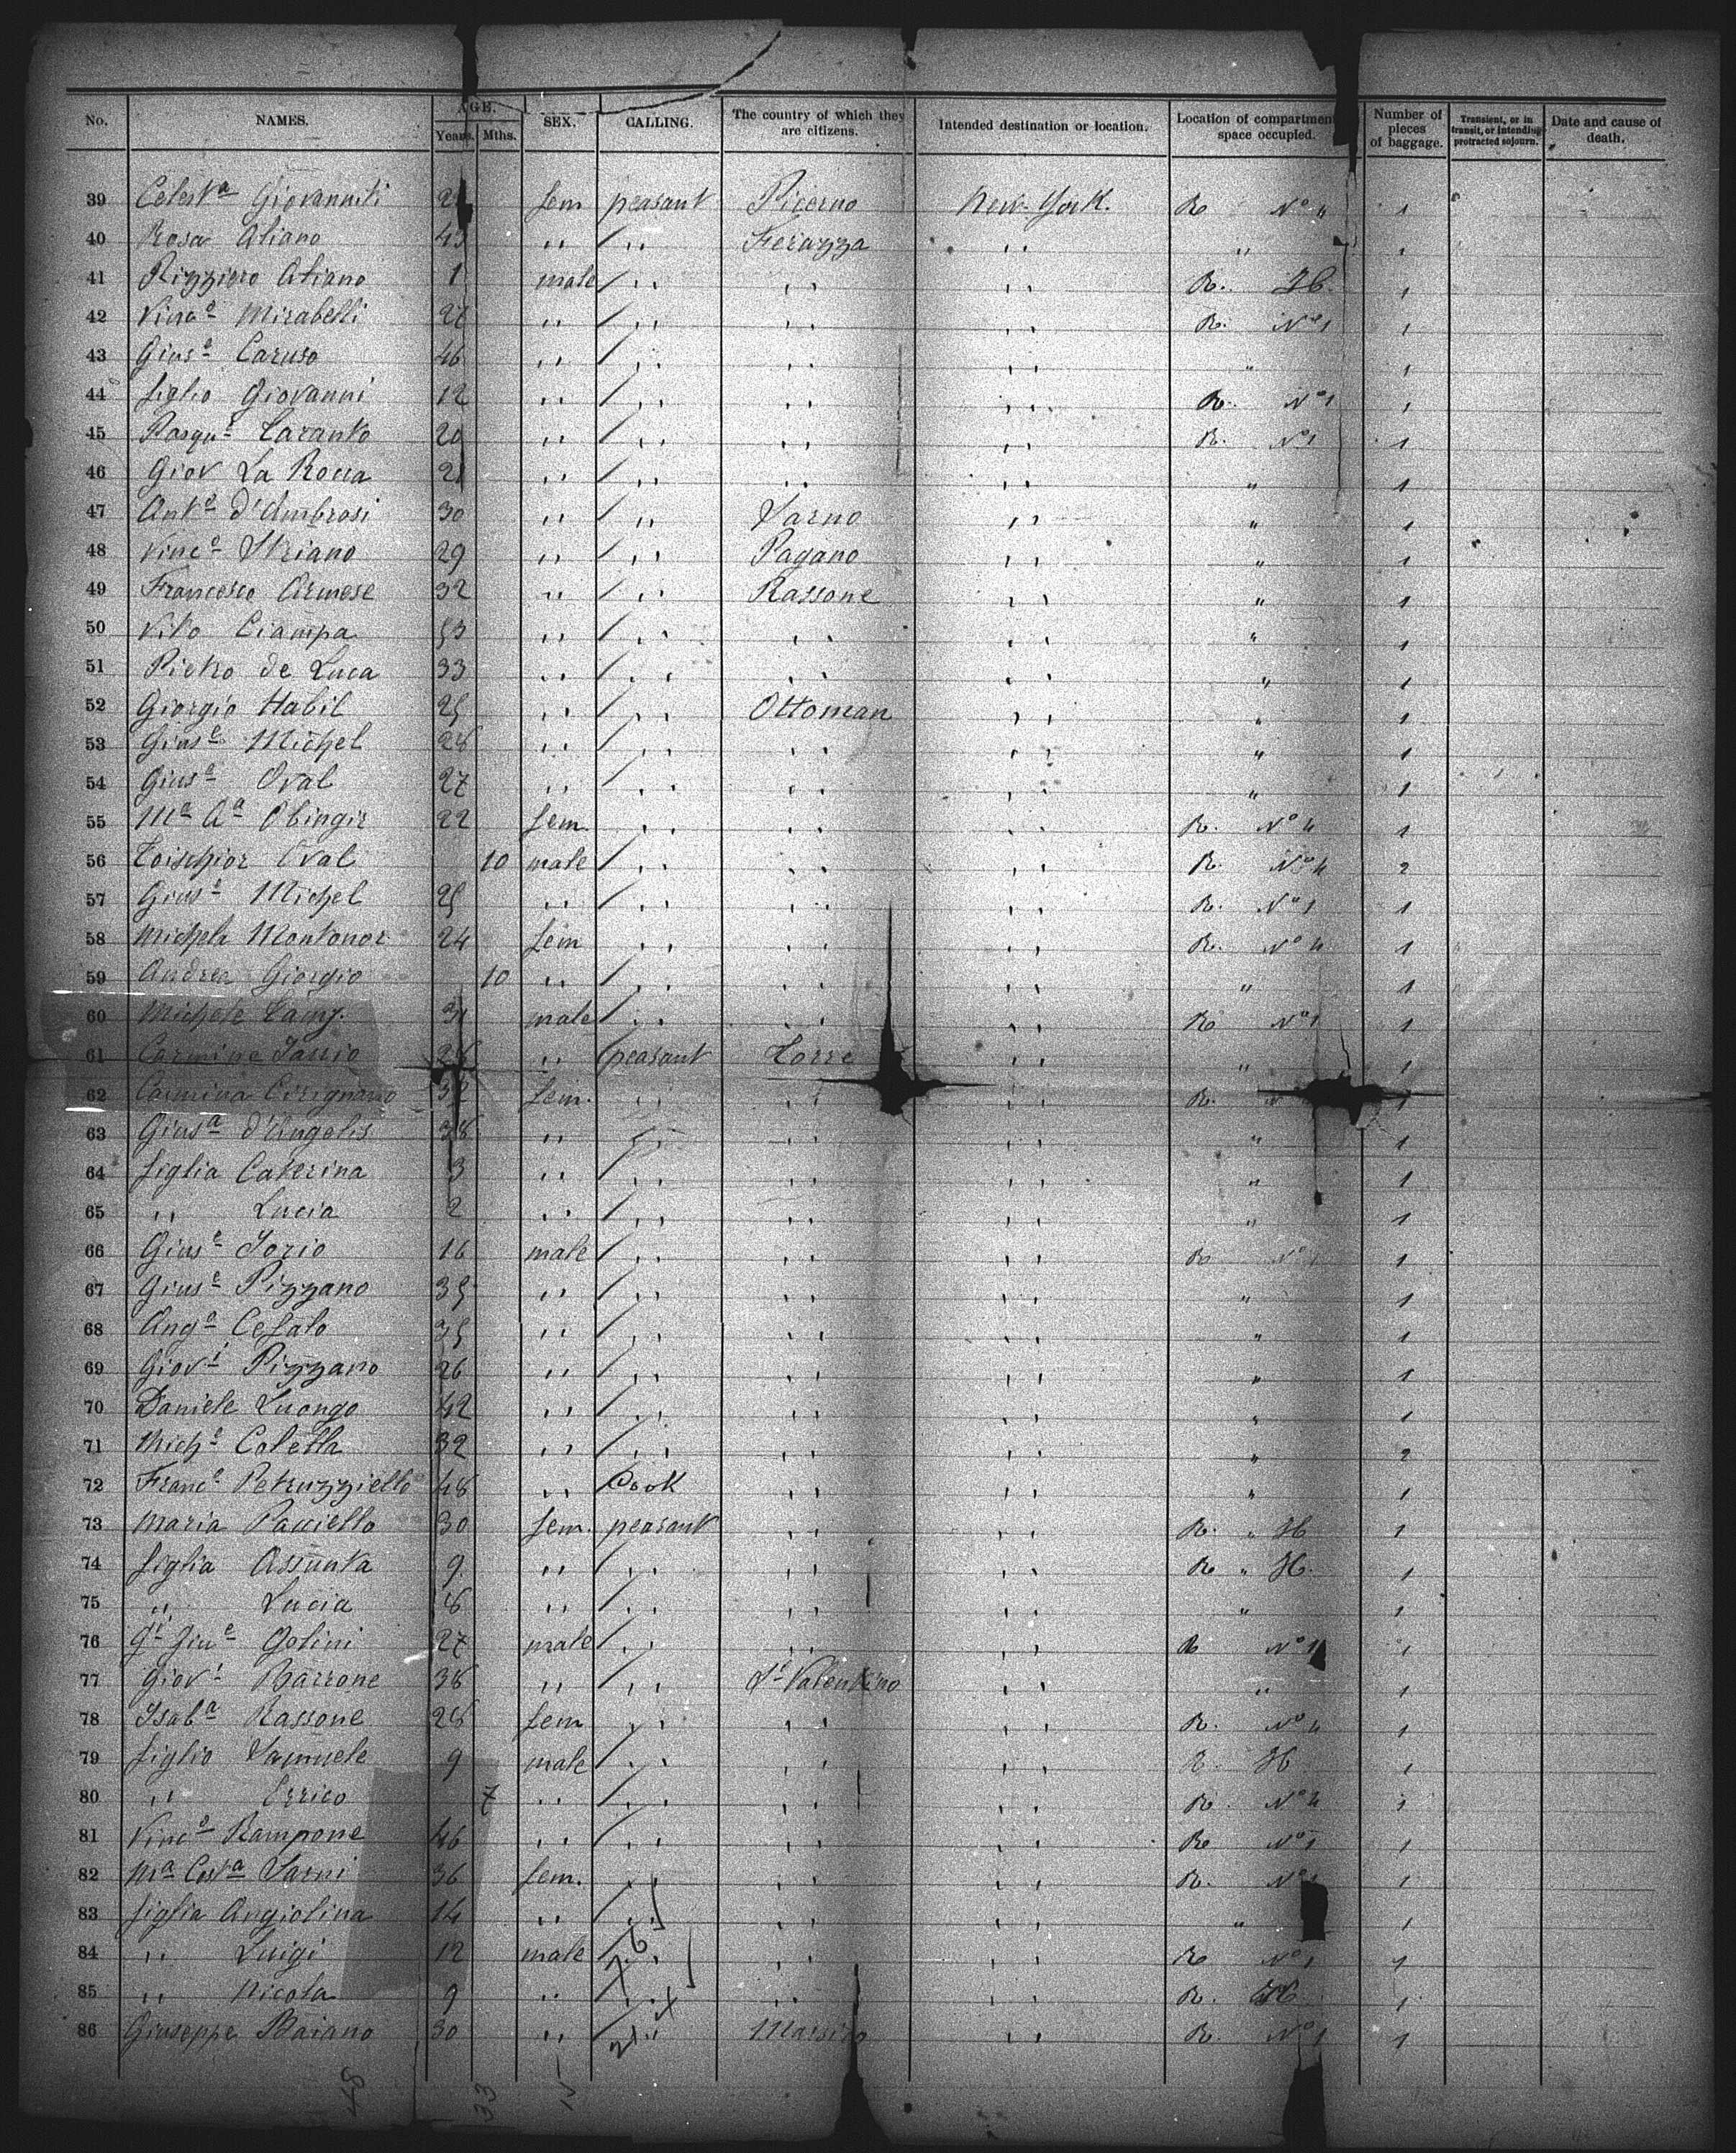 No. NAMES. AGE. Years. Mths. SEX. CALLING. The country of which they are citizens. Intended destination or location. Location of compartment space occupied. Number of pieces of baggage. Transient, or in transit, or intending protracted sojourn. Date and cause of death.
39 Celest.a Giovanniti fem peasant Picerno New-York. R No 4 1
40 Rosa Aliano 43 " " Ferazza " " 1
41 Rizziero Aliano 1 male " " " R. H. 1
42 Vinc.o Mirabelli 27 " " " " R. No 1 1
43 Gius.e Caruso 46 " " " " " 1
44 figlio Giovanni 12 " " " " R. No 1 1
45 Pasqu.e Taranto 20 " " " " R. No 1 1
46 Giov La Rocca 21 " " " " " 1
47 Ant.o d'Ambrosi 30 " " Sarno " " 1
48 Vinc.o Striano 29 " " Pagano " " 1
49 Francesco Armese 32 " " Rassone " " 1
50 Vito Ciampa 53 " " " " " 1
51 Pietro de Luca 33 " " " " " 1
52 Giorgio Habil 25 " " Ottoman " " 1
53 Gius.e Michel 28 " " " " " 1
54 Gius.e Oval 27 " " " " " 1
55 M.a A.a Obingir 22 fem. " " " R. No 4 1
56 Toischior Oval 10 male " " " R. No 4 2
57 Gius.e Michel 25 " " " " R. No 1 1
58 Michela Montonor 24 fem " " " R. No 4 1
59 Andrea Giorgio 10 " " " " " 1
60 Michele Tamy. 31 male " " " R No 1 1
61 Carmine Iassio 28 " peasant Torre " " 1
62 Carmina Cirignano 32 fem. " " " R. 1
63 Gius.a d'Angelis 38 " " " " " 1
64 figlia Caterina 3 " " " " " 1
65 " Lucia 2 " " " " " 1
66 Gius.e Iorio 16 male " " " R No 1 1
67 Gius.e Pizzano 35 " " " " " 1
68 Ang.o Cefalo 35 " " " " " 1
69 Giov.i Pizzano 26 " " " " " 1
70 Daniele Luongo 42 " " " " " 1
71 Mich.e Coletta 32 " " " " " 2
72 Franc.o Petruzziello 48 " Cook " " " 1
73 Maria Pacciello 30 fem. peasant " " R. " H 1
74 figlia Assunta 9 " " " " R " H. 1
75 " Lucia 6 " " " " " 1
76 Giu.e Golini 27 male " " " R No 1 1
77 Giov.i Barrone 38 " " S.t Valentino " " 1
78 Isab.a Rassone 28 fem " " " R. No 4 1
79 figlio Samuele 9 male " " " R. H 1
80 " Errico 7 " " " " R. No 4 1
81 Vinc.o Rampone 46 " " " " R No 1 1
82 M.a Cost.a Sarni 36 fem. " " " R. No 1
83 figlia Angiolina 14 " " " " " 1
84 " Luigi 12 male " " " R No 1 1
85 " Nicola 9 " " " " R. H 1
86 Giuseppe Baiano 30 " " " R. No 1 1
48 33 15